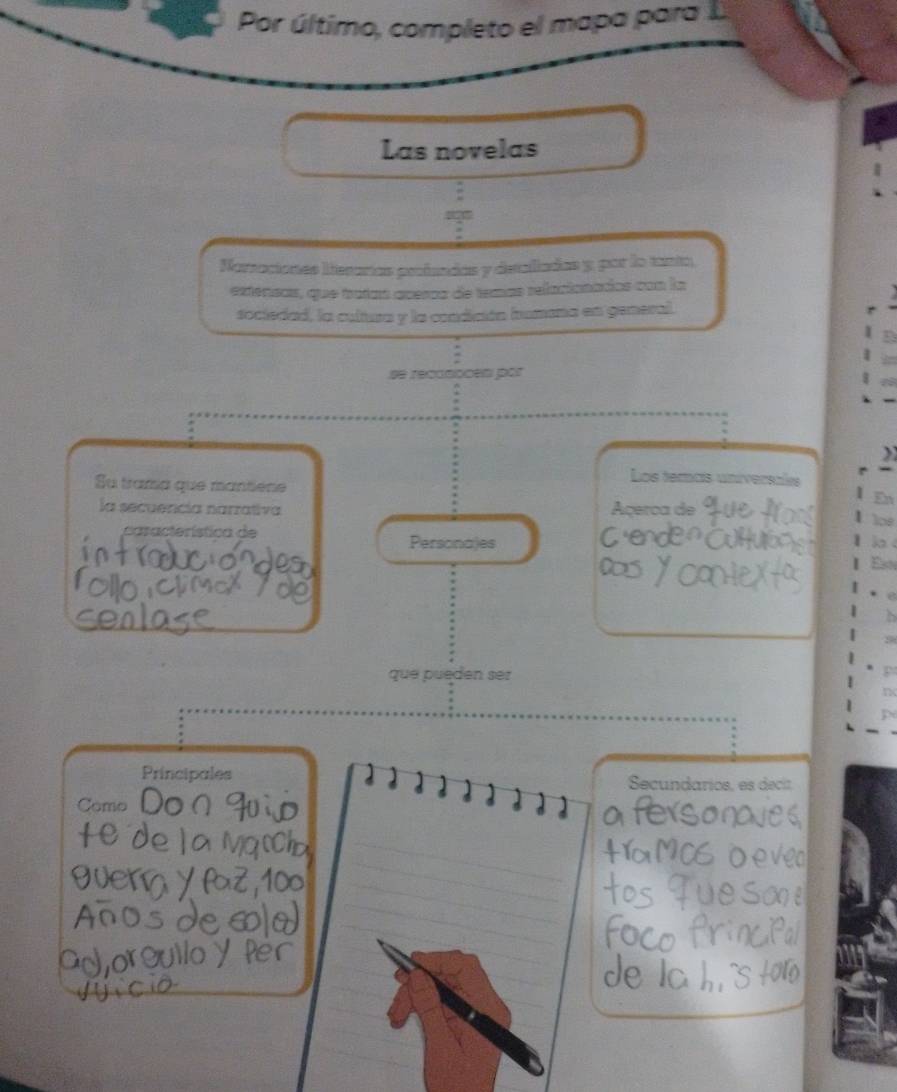 Por último, completo el mapa para
Las novelas
son
Narraciones literarias profundas y detalladas y, por lo tanto,
extensas, que tratan acerca de temas relacionados con la
sociedad, la cultura y la condición humana en general.
se reconocen por
Su trama que mantiene
la secuencia narrativa
característica de
introducióndesa
rollo, climax y de
senlase
Personajes
Los temas universales
Acerca de que tran
cienden
y contextos
que pueden ser
Principales
Como Don quijo
te de la Mancha,
guerra y paz, 100
Años de soled
ad, orgullo y per
juicio
Secundarios, es decir,
a Personajes,
tramas o even
tos que son e
Foco Principal
de la historia
En
los
la